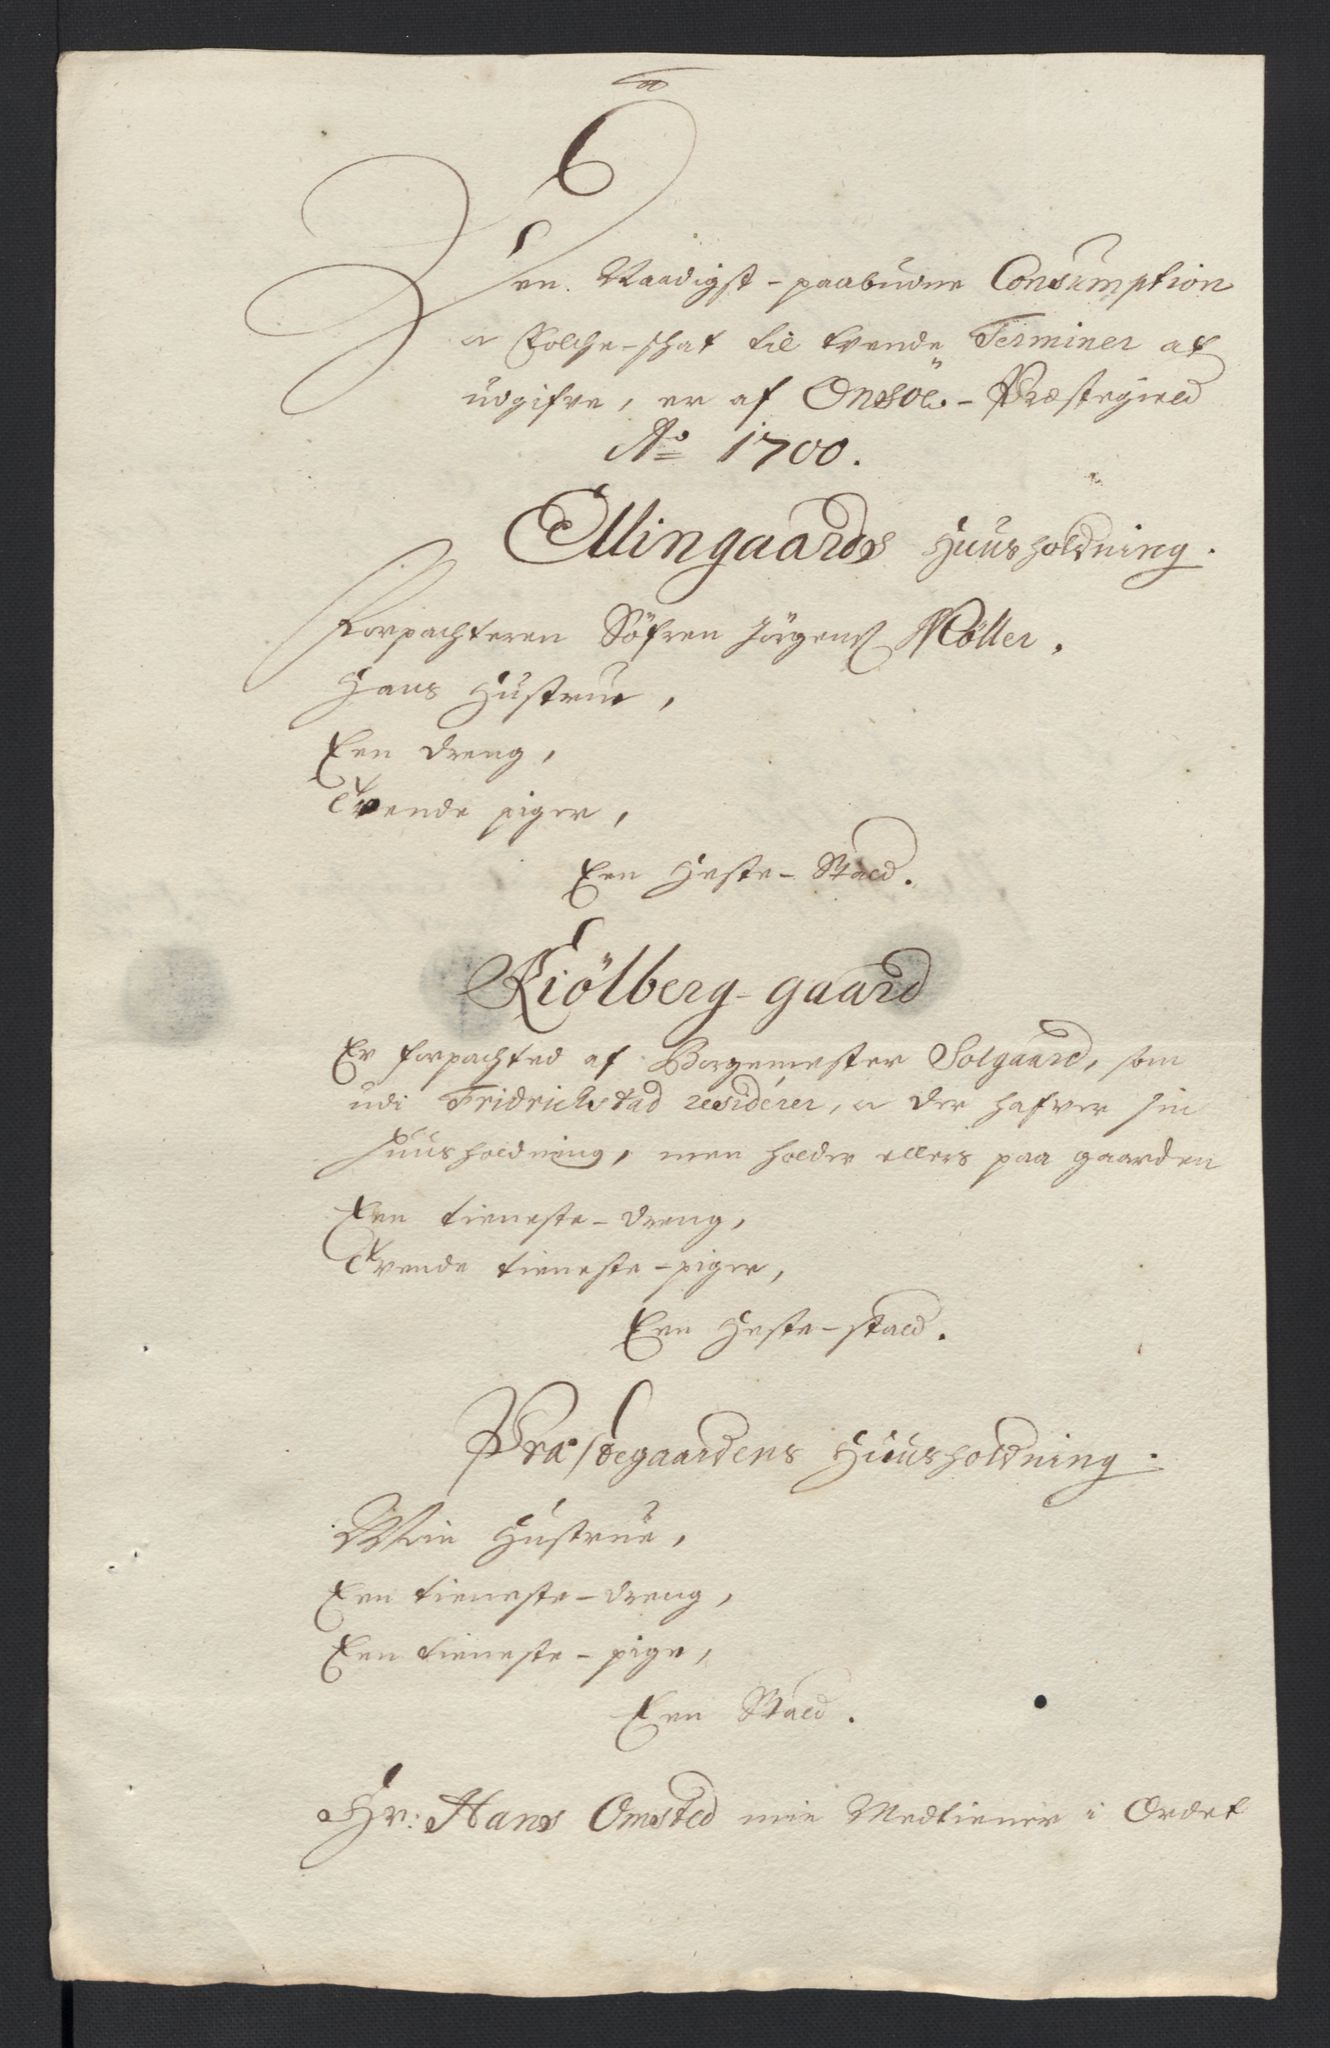 Den Naadigst-paabudne Consumption
a Folche-schat til tvende Terminer at
udgifve, er af Onsöe-Præstegield
Aº 1700.
Ellingaards Huusholdning.
Forpachteren Söfren Jörgens Möller,
Hans Hustrue,
Een dreng,
Tvende piger,
Een Heste-Stald.
Kiölberg-gaard
Er forpachted af Borgemester Solgaard, som
udi Fridrichstad residérer, a der hafver sin
Huusholdning, men holder ellers paa gaarden
Een tieneste-dreng,
Tvende tieneste-piger,
Een Heste-stald.
Præstegaardens Huusholdning.
Min Hustrue,
Een tieneste-dreng,
Een tieneste-pige,
Een Stald.
Hr: Hans Omsted min Medtiener i Ordet